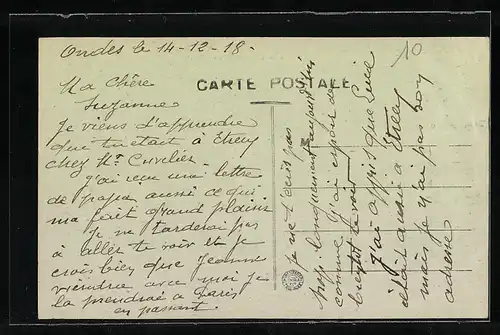 Ondes le 14-12-18-
10
CARTE POSTALE
Ma chère
Suzanne
Je viens d'apprendre
que tu était à Etreux
chez Mr Cuvelier
J'ai reçu une lettre
de papa aussi ce qui
ma fait grand plaisir
Je ne tarderai pas
à aller te voir et je
crois bien que Jeanne
viendra avec moi je
la prendrai à Paris
en passant.
Je ne t'écris pas
plus longuement aujourd'hui
comme j'ai espoir de
bientôt te voir
J'ai appris que Lucie
était aussi à Etreux
mais je n'ai pas son
adresse